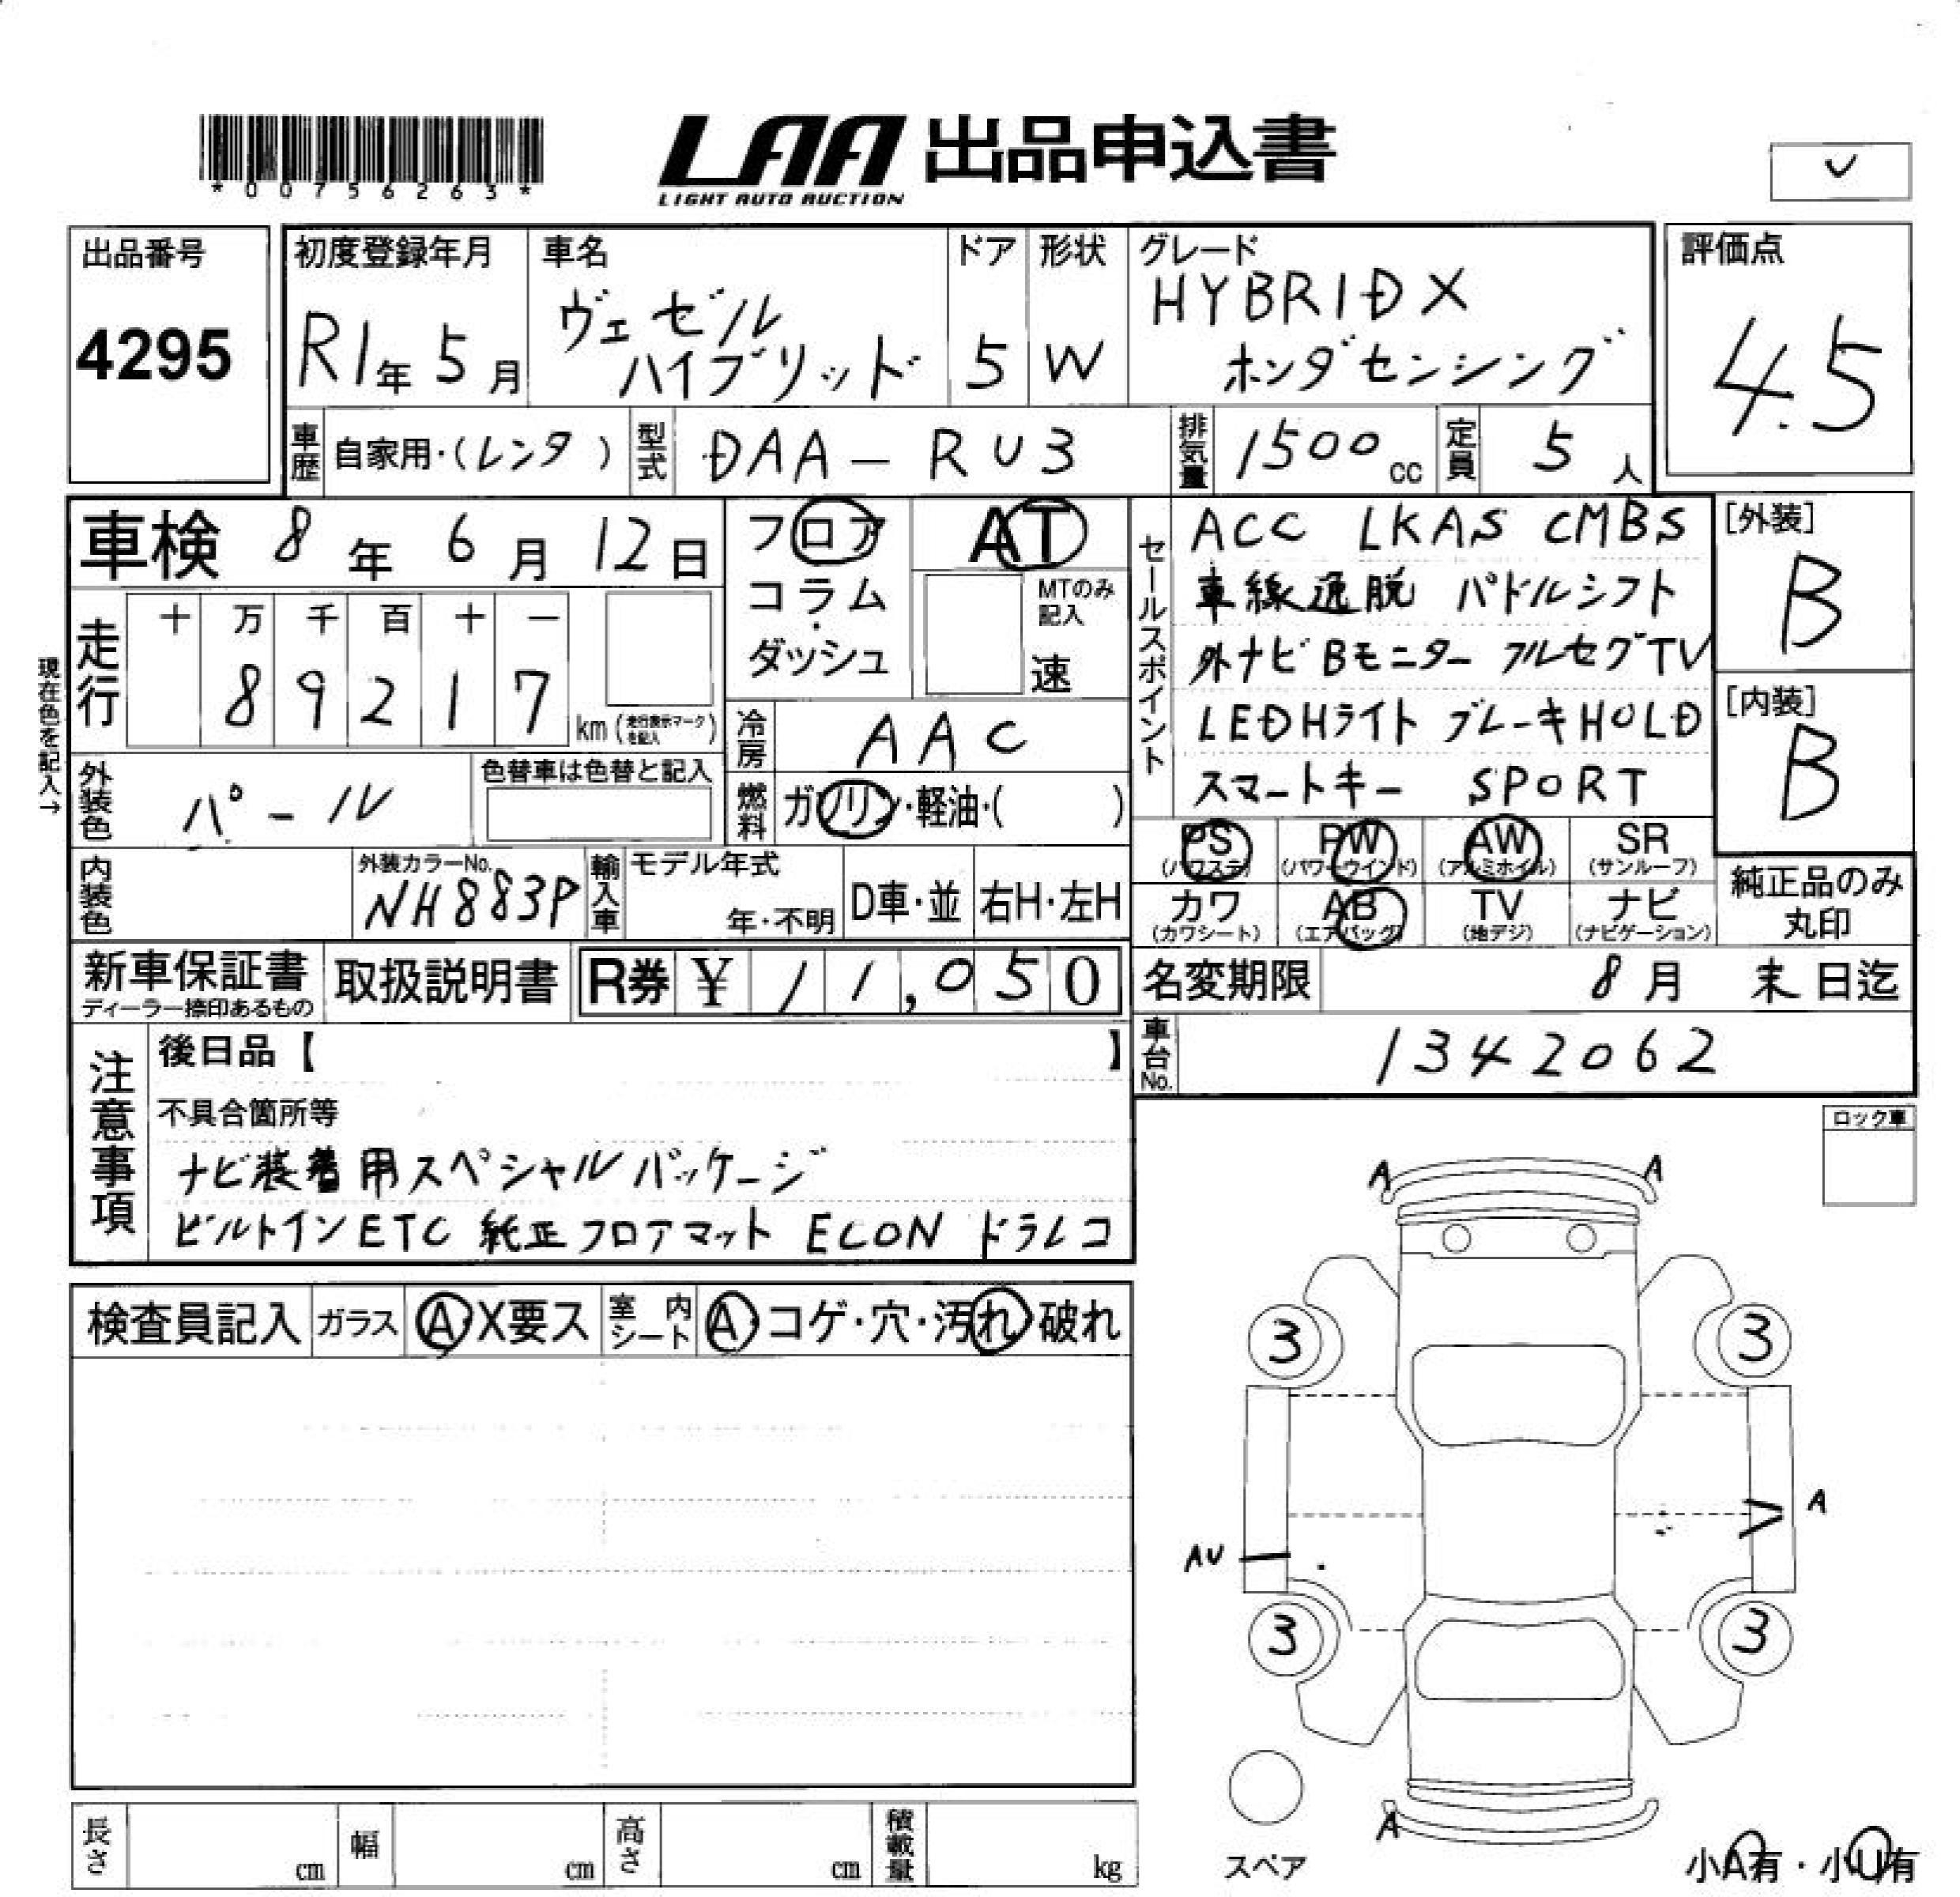 *00756263*
LAA 出品申込書
LIGHT AUTO AUCTION
出品番号
4295
初度登録年月
R1年 5月
車名
ヴェゼル
ハイブリッド
ドア
5
形状
W
グレード
HYBRID X
ホンダセンシング
評価点
4.5
車歴 自家用・(レンタ)
型式 DAA-RU3
排気量 1500cc
定員 5人
車検 8年 6月 12日
現在色を記入→
走行 十 万 千 百 十 一
89217 km (走行表示マークを記入)
フロア
コラム・
ダッシュ
AT
MTのみ記入
速
冷房 AAC
燃料 ガソリン・軽油・( )
外装色 パール
色替車は色替と記入
内装色
外装カラーNo.
NH883P
輸入車 モデル年式
年・不明
D車・並
右H・左H
セールスポイント
ACC LKAS CMBS
車線逸脱 パドルシフト
外ナビ Bモニター フルセグTV
LEDHライト ブレーキHOLD
スマートキー SPORT
[外装]
B
[内装]
B
PS (パワステ)
PW (パワーウインド)
AW (アルミホイル)
SR (サンルーフ)
カワ (カワシート)
AB (エアバッグ)
TV (地デジ)
ナビ (ナビゲーション)
純正品のみ
丸印
新車保証書
ディーラー捺印あるもの
取扱説明書
R券 ¥ 11,050
名変期限 8月 末日迄
車台No. 1342062
注意事項
後日品【 】
不具合箇所等
ナビ装着用スペシャルパッケージ
ビルトインETC 純正フロアマット ECON ドラレコ
ロック車
検査員記入 ガラス A・X要ス 室内シート A・コゲ・穴・汚れ・破れ
A A
3 3
A
AU
3 3
A
スペア
小A有・小U有
長さ cm 幅 cm 高さ cm 積載量 kg